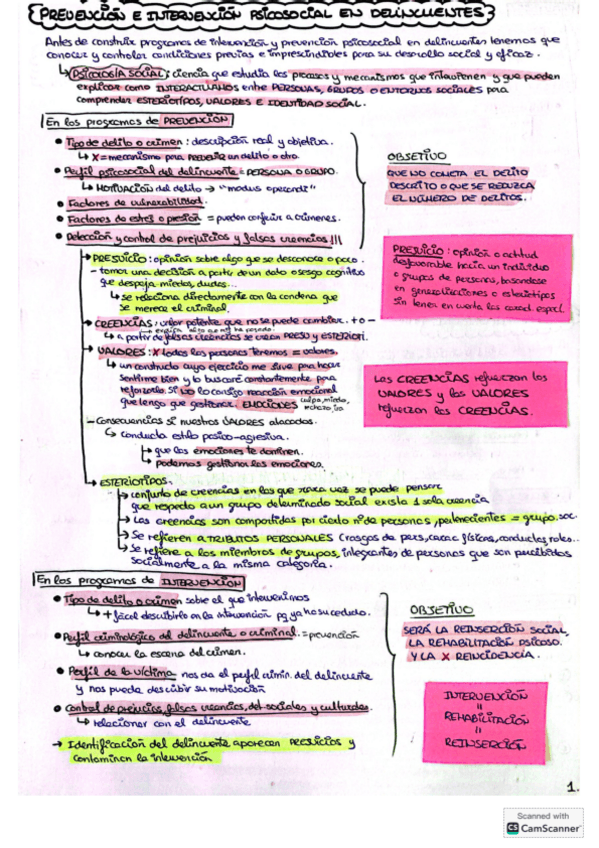 PREVENCIÓN E INTERVENCIÓN PSICOSOCIAL EN DELINCUENTES
Antes de construir programas de intervención y prevención psicosocial en delincuentes tenemos que
conocer y controlar condiciones previas e imprescindibles para su desarrollo social y eficaz.
↳ PSICOLOGÍA SOCIAL: ciencia que estudia los procesos y mecanismos que intervienen y que pueden
explicar como INTERACTUAMOS entre PERSONAS, GRUPOS O ENTORNOS SOCIALES para
comprender ESTERIOTIPOS, VALORES E IDENTIDAD SOCIAL.
En los programas de PREVENCIÓN
• Tipo de delito o crimen: descripción real y objetiva.
↳ X = mecanismo para PREVENIR un delito o otro.
• Perfil psicosocial del delincuente = PERSONA O GRUPO.
↳ MOTIVACIÓN del delito → "modus operandi"
• Factores de vulnerabilidad.
• Factores de estrés o presión = pueden confluir a crímenes.
• Detección y control de prejuicios y falsas creencias!!!
OBJETIVO
QUE NO COMETA EL DELITO
DESCRITO O QUE SE REDUZCA
EL NÚMERO DE DELITOS.
→ PREJUICIO: opinión sobre algo que se desconoce o poco.
- tomar una decisión a partir de un dato o sesgo cognitivo
que despoja miedos, dudas...
↳ se relaciona directamente con la condena que
se merece el criminal.
PREJUICIO: opinión o actitud
desfavorable hacia un individuo
o grupos de personas, basandose
en generalizaciones o estereotipos
sin tener en cuenta las caract. especí.
→ CREENCIAS: valor potente que no se puede cambiar. + o -
↳ a partir de falsas creencias se crean PREJU y ESTERIOTI.
→ VALORES: X todas las personas tenemos = valores.
↳ un constructo cuyo ejercicio me sirve para hacer
sentirme bien y lo buscaré constantemente para
reforzarlo. Si NO lo consigo reacción emocional
que tengo que gestionar. EMOCIONES culpa, miedo,
rechazo, ira
LAS CREENCIAS refuerzan los
VALORES y los VALORES
refuerzan las CREENCIAS.
- Consecuencias si nuestros VALORES atacados.
↳ conducta estilo pasico-agresiva.
↳ que las emociones te dominen.
↳ podamos gestionar las emociones.
→ ESTERIOTIPOS.
↳ conjunto de creencias en los que rara vez se puede pensar
que respecto a un grupo determinado social exista 1 sola creencia
↳ Las creencias son compartidas por cierto nº de personas, pertenecientes = grupo soc.
↳ Se refieren a TRIBUTOS PERSONALES (rasgos de pers, carac físicas, conductas, roles...
↳ Se refiere a los miembros de grupos, integrantes de personas que son percibidos
socialmente a la misma categoria.
En los programas de INTERVENCIÓN
• Tipo de delito o crimen sobre el que intervenimos
↳ + fácil describirlo en la intervención pq ya ha sucedido.
• Perfil criminológico del delincuente o criminal. = prevención
↳ conocer la escena del crimen.
• Perfil de la víctima nos da el perfil crimin. del delincuente
y nos puede describir su motivación
• Control de prejucios, falsas creencias, det. sociales y culturales.
↳ relacionar con el delincuente
→ Identificación del delincuente aparecen PREJUICIOS y
contaminan la intervención
OBJETIVO
SERÁ LA REINSERCIÓN SOCIAL,
LA REHABILITACIÓN PSICOSO.
Y LA X REINCIDENCIA.
INTERVENCIÓN
=
REHABILITACIÓN
=
REINSERCIÓN
1.
Scanned with
CS CamScanner